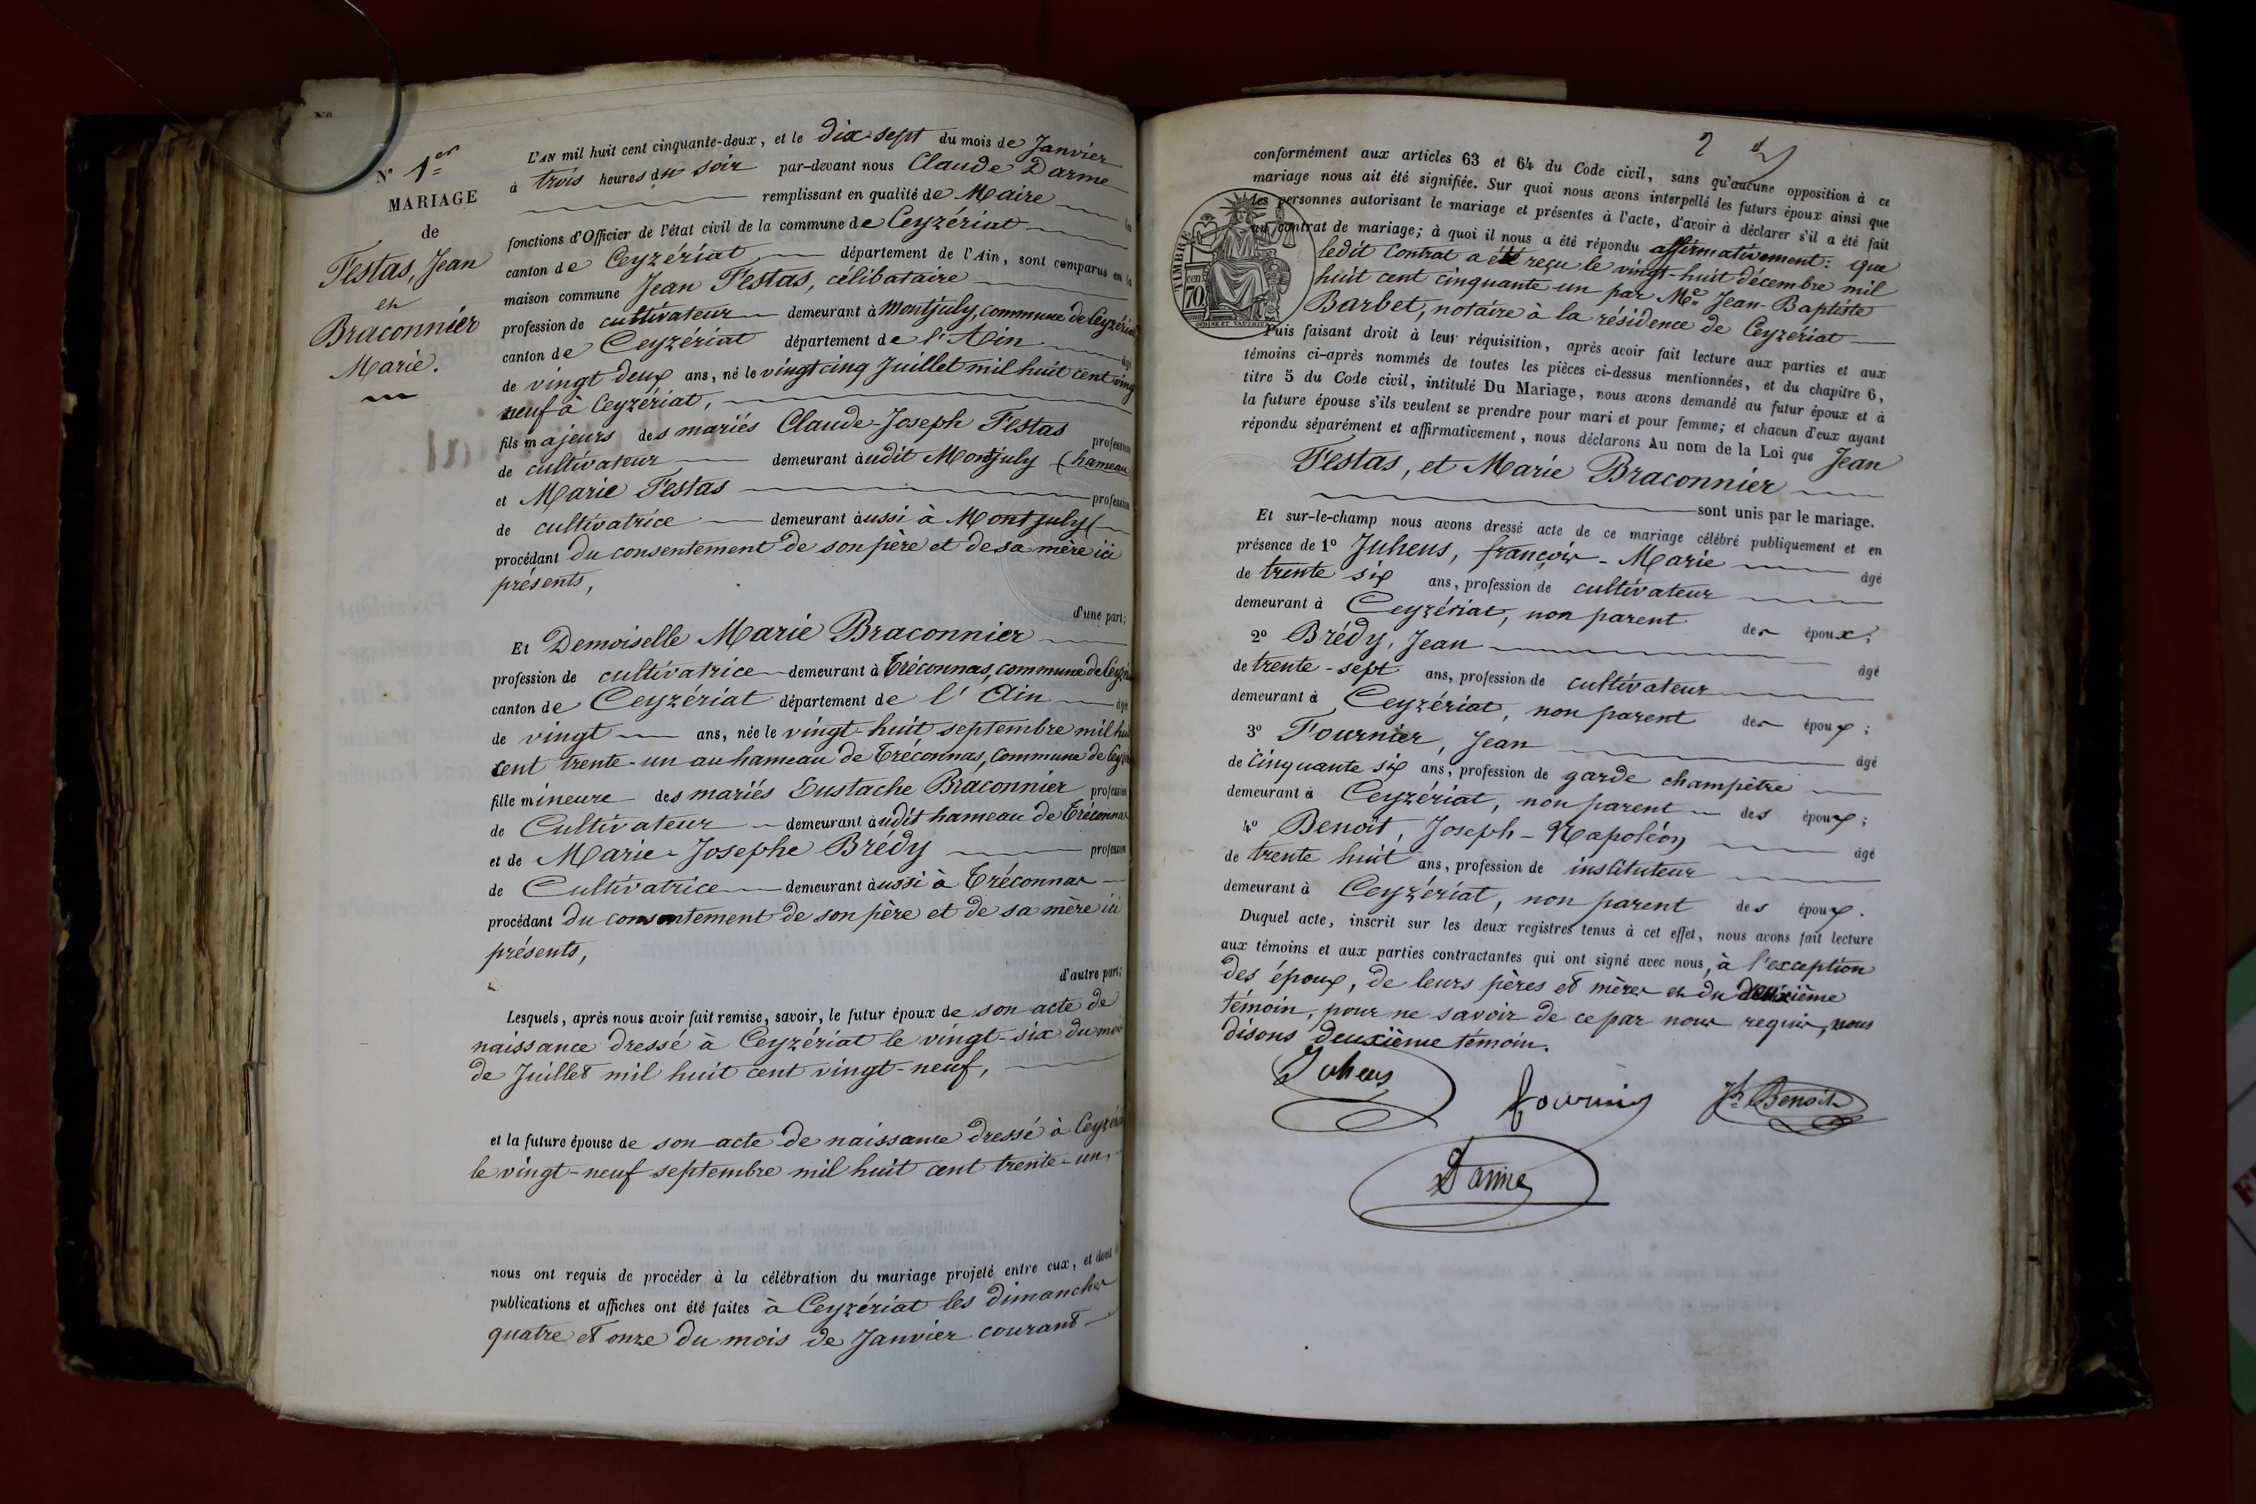 N° 1er
MARIAGE
de
Festas, Jean
et
Braconnier
Marie.
L'AN mil huit cent cinquante-deux, et le dix-sept du mois de Janvier
à trois heures du soir par-devant nous Claude Darme
remplissant en qualité de Maire les
fonctions d'Officier de l'état civil de la commune de Ceyzériat
canton de Ceyzériat département de l'Ain, sont comparus en la
maison commune Jean Festas, célibataire
profession de cultivateur demeurant à Montjuly, commune de Ceyzériat
canton de Ceyzériat département de l'Ain âgé
de vingt deux ans, né le vingt cinq Juillet mil huit cent vingt
neuf à Ceyzériat,
fils majeurs des mariés Claude-Joseph Festas profession
de cultivateur demeurant àudit Montjuly (hameau
et Marie Festas profession
de cultivatrice demeurant àussi à Montjuly (
procédant du consentement de son père et de sa mère ici
présents,
d'une part;
Et Demoiselle Marie Braconnier
profession de cultivatrice demeurant à Tréconnas, commune de Ceyzériat
canton de Ceyzériat département de l'Ain âgée
de vingt ans, née le vingt-huit septembre mil huit
cent trente-un au hameau de Tréconnas, Commune de Ceyzériat
fille mineure des mariés Eustache Braconnier profession
de Cultivateur demeurant àudit hameau de Tréconnas
et de Marie-Josephe Brédy profession
de Cultivatrice demeurant àussi à Tréconnas
procédant du consentement de son père et de sa mère ici
présents,
d'autre part;
Lesquels, après nous avoir fait remise, savoir, le futur époux de son acte de
naissance dressé à Ceyzériat le vingt-six du mois
de Juillet mil huit cent vingt-neuf,
et la future épouse de son acte de naissance dressé à Ceyzériat
le vingt-neuf septembre mil huit cent trente-un,
nous ont requis de procéder à la célébration du mariage projeté entre eux, et dont les
publications et affiches ont été faites à Ceyzériat les dimanches
quatre et onze du mois de Janvier courant
2
conformément aux articles 63 et 64 du Code civil, sans qu'aucune opposition à ce
mariage nous ait été signifiée. Sur quoi nous avons interpellé les futurs époux ainsi que
les personnes autorisant le mariage et présentes à l'acte, d'avoir à déclarer s'il a été fait
un contrat de mariage; à quoi il nous a été répondu affirmativement: que
ledit Contrat a été reçu le vingt-huit décembre mil
huit cent cinquante-un par Me Jean-Baptiste
Barbet, notaire à la résidence de Ceyzériat
TIMBRE
cen
70
Puis faisant droit à leur réquisition, après avoir fait lecture aux parties et aux
témoins ci-après nommés de toutes les pièces ci-dessus mentionnées, et du chapitre 6,
titre 5 du Code civil, intitulé Du Mariage, nous avons demandé au futur époux et à
la future épouse s'ils veulent se prendre pour mari et pour femme; et chacun d'eux ayant
répondu séparément et affirmativement, nous déclarons Au nom de la Loi que Jean
Festas, et Marie Braconnier
sont unis par le mariage.
Et sur-le-champ nous avons dressé acte de ce mariage célébré publiquement et en
présence de 1° Juhens, françois-Marie âgé
de trente six ans, profession de cultivateur
demeurant à Ceyzériat, non parent des époux;
2° Brédy, Jean âgé
de trente-sept ans, profession de cultivateur
demeurant à Ceyzériat, non parent des époux;
3° Fournier, Jean âgé
de cinquante six ans, profession de garde champêtre
demeurant à Ceyzériat, non parent des époux;
4° Benoit, Joseph-Napoléon âgé
de trente huit ans, profession de instituteur
demeurant à Ceyzériat, non parent des époux.
Duquel acte, inscrit sur les deux registres tenus à cet effet, nous avons fait lecture
aux témoins et aux parties contractantes qui ont signé avec nous, à l'exception
des époux, de leurs pères et mères et du deuxième
témoin, pour ne savoir de ce par nous requis, nous
disons deuxième témoin.
Juhens
fournier
Jh Benoit
Darme